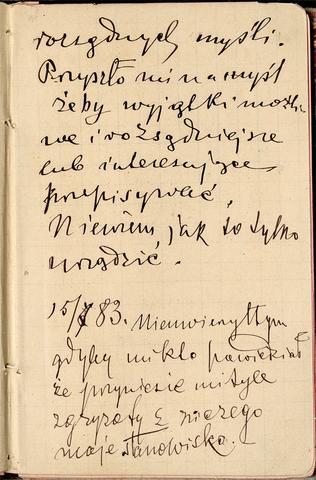 rozsądnych myśli.
Przyszło mi na myśl
żeby wyjątki możli
we i rozsądniejsze
lub interesujące
przepisywać,
Niewiem, jak to tylko
urządzić.
15/ 83. Niewierzyłbym
gdyby mi kto powiedział
że przyniesie mi tyle
zgryzoty z niczego
moje stanowisko.